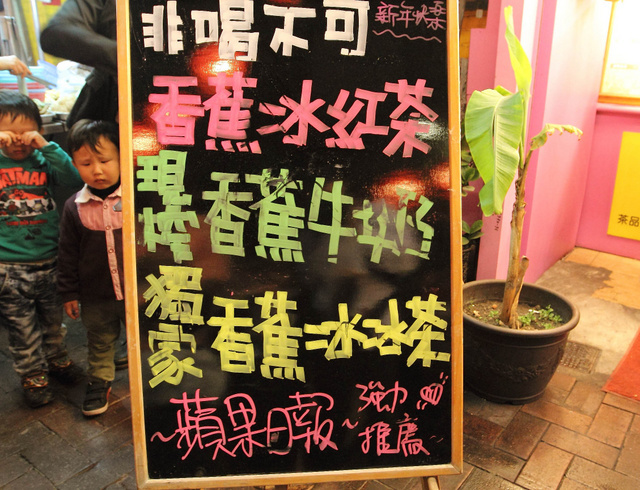 非喝不可
新年快樂
香蕉冰紅茶
現榨香蕉牛奶
獨家香蕉冰冰茶
~蘋果日報~
強力
推薦
茶品